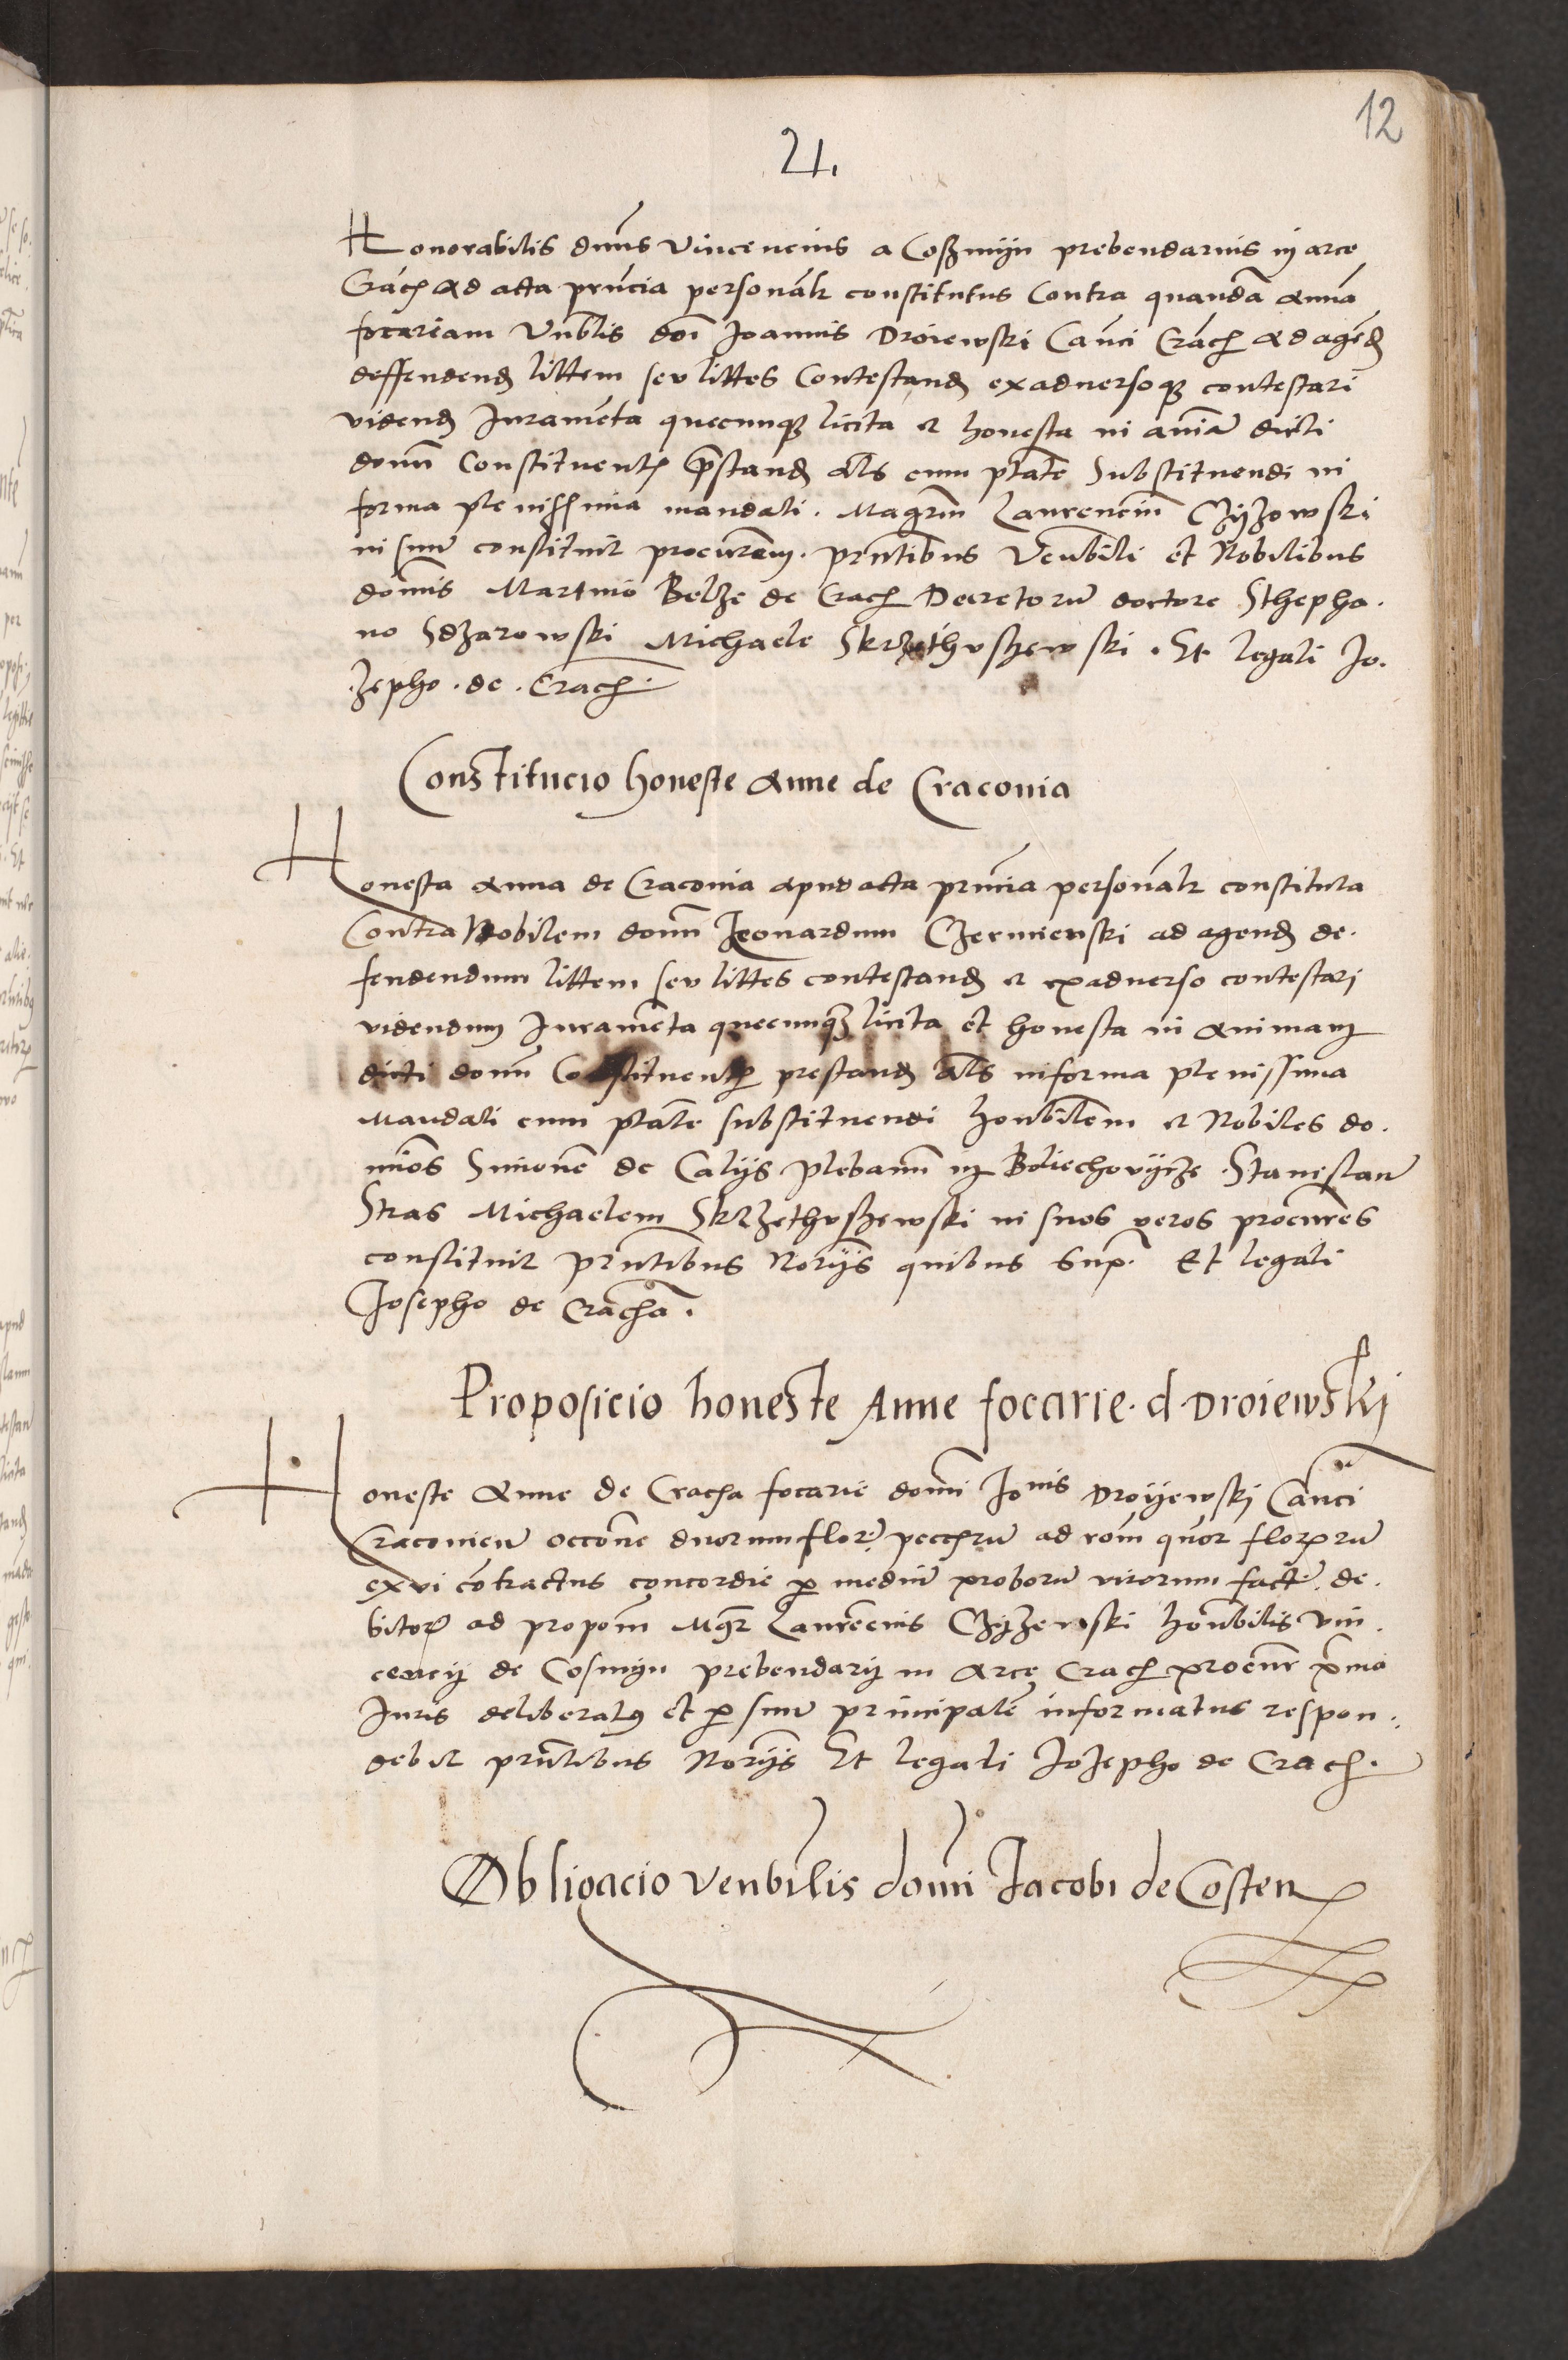 12
21.
Honorabilis dnus Vincencius a Coßmijn prebendarius in arce
Crach ad acta prncia personalr constitutus Contra quandā Annā
focariam Vnblis doi Joannis Droiewski Canci Crach ad agend
deffendend littem seu littes Contestand exadversoqz contestari
vidend Juramēta quecunqz licita et honesta in aniā dicti
domn Constituent prestand als cum ptate Substituendi in
forma plenissima mandati. Magrm Laurencim Czyzowski
in suū constituit procurem. prntibus Venbili et Nobilibus
domīs Martino Belze de Crach Decretorū doctore Sthepha.
no Sdzarowski Michaele Skrzethvszewski. Et legali Jo.
.zepho. de. Crach.
Constitucio honeste Anne de Craconia
Honesta Anna de Craconia apud acta prncia personalr constituta
Contra Nobilem domn Leonardum Czermienski ad agend de.
fendendum littem seu littes contestand et exadverso contestari
videndum Juramēta quecunqz licita et honesta in animam
dicti domn Constituent prestand als in forma plenissima
Mandati cum ptate substituendi honbilem et Nobiles do.
mīos Simonē de Calijs plebanū in Boliechovijcze. Stanislaū
Stras Michaelem Skrzethvszewski in suos veros procures
constituit prntibus Norijs quibus sup. Et legali
Josepho de Cracha.
Proposicio honeste Anne focarie. d. Droiewski
Honeste Anne de Cracha focarie domi Jonis Droyewski Canci
Craconien occone duorum flor. pecchrū ad rōm quor florzrū
ex vi cōtractus concordie p mediū proborū virorum facte. de.
bitorz ad propom Mgr Laurecius Czyzewski honbilis Vin.
cencij de Cosmijn prebendarij in Arce Crach procur prmo
Juris deliberatus et p suū principalē informatus respon.
debit prntibus Norijs Et legali Jozepho de Crach.
Obligacio Venbilis domi Jacobi de Costen